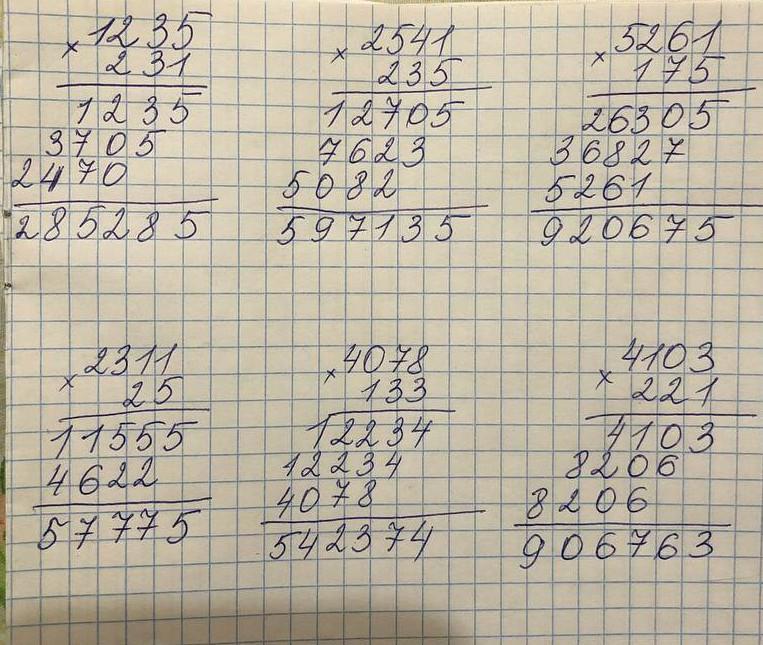 × 1235
231
1235
3705
2470
285285
× 2541
235
12705
7623
5082
597135
× 5261
175
26305
36827
5261
920675
× 2311
25
11555
4622
57775
× 4078
133
12234
12234
4078
542374
× 4103
221
4103
8206
8206
906763